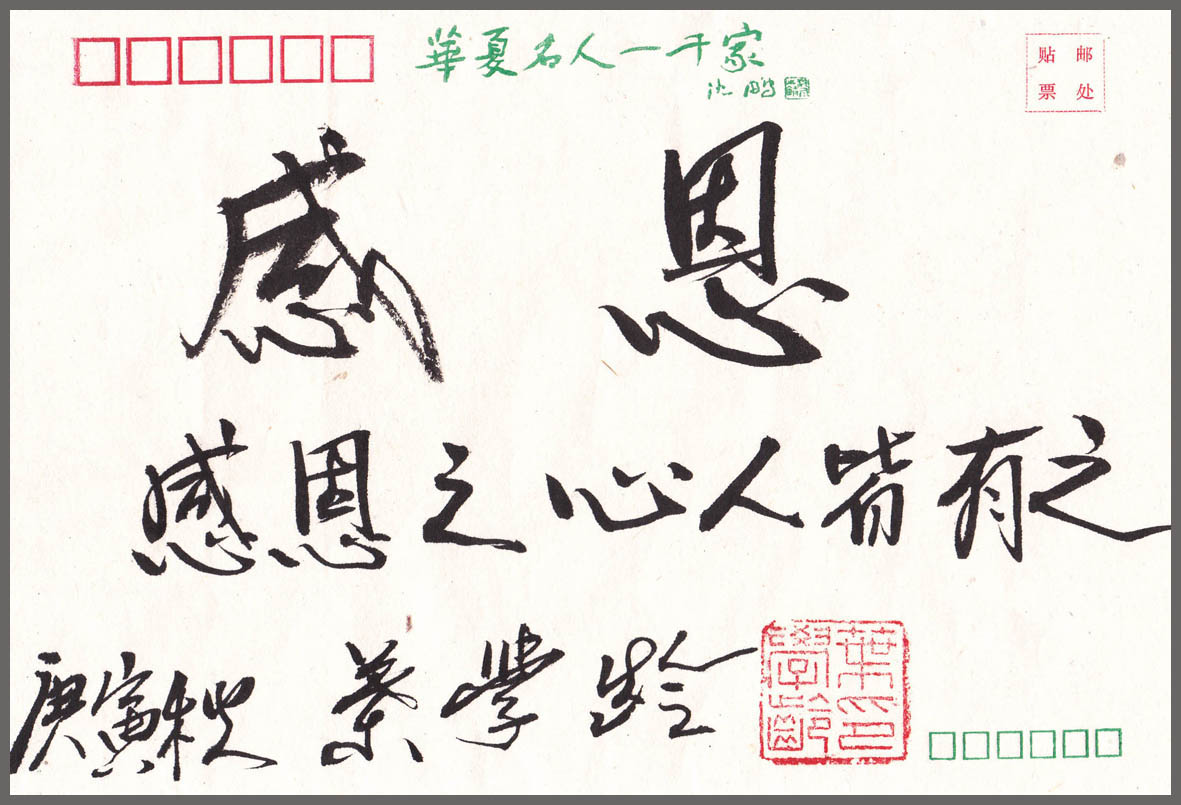 華夏名人一千家
沈鹏
贴邮
票处
感恩
感恩之心人皆有之
庚寅秋 葉学龄
葉印學齡